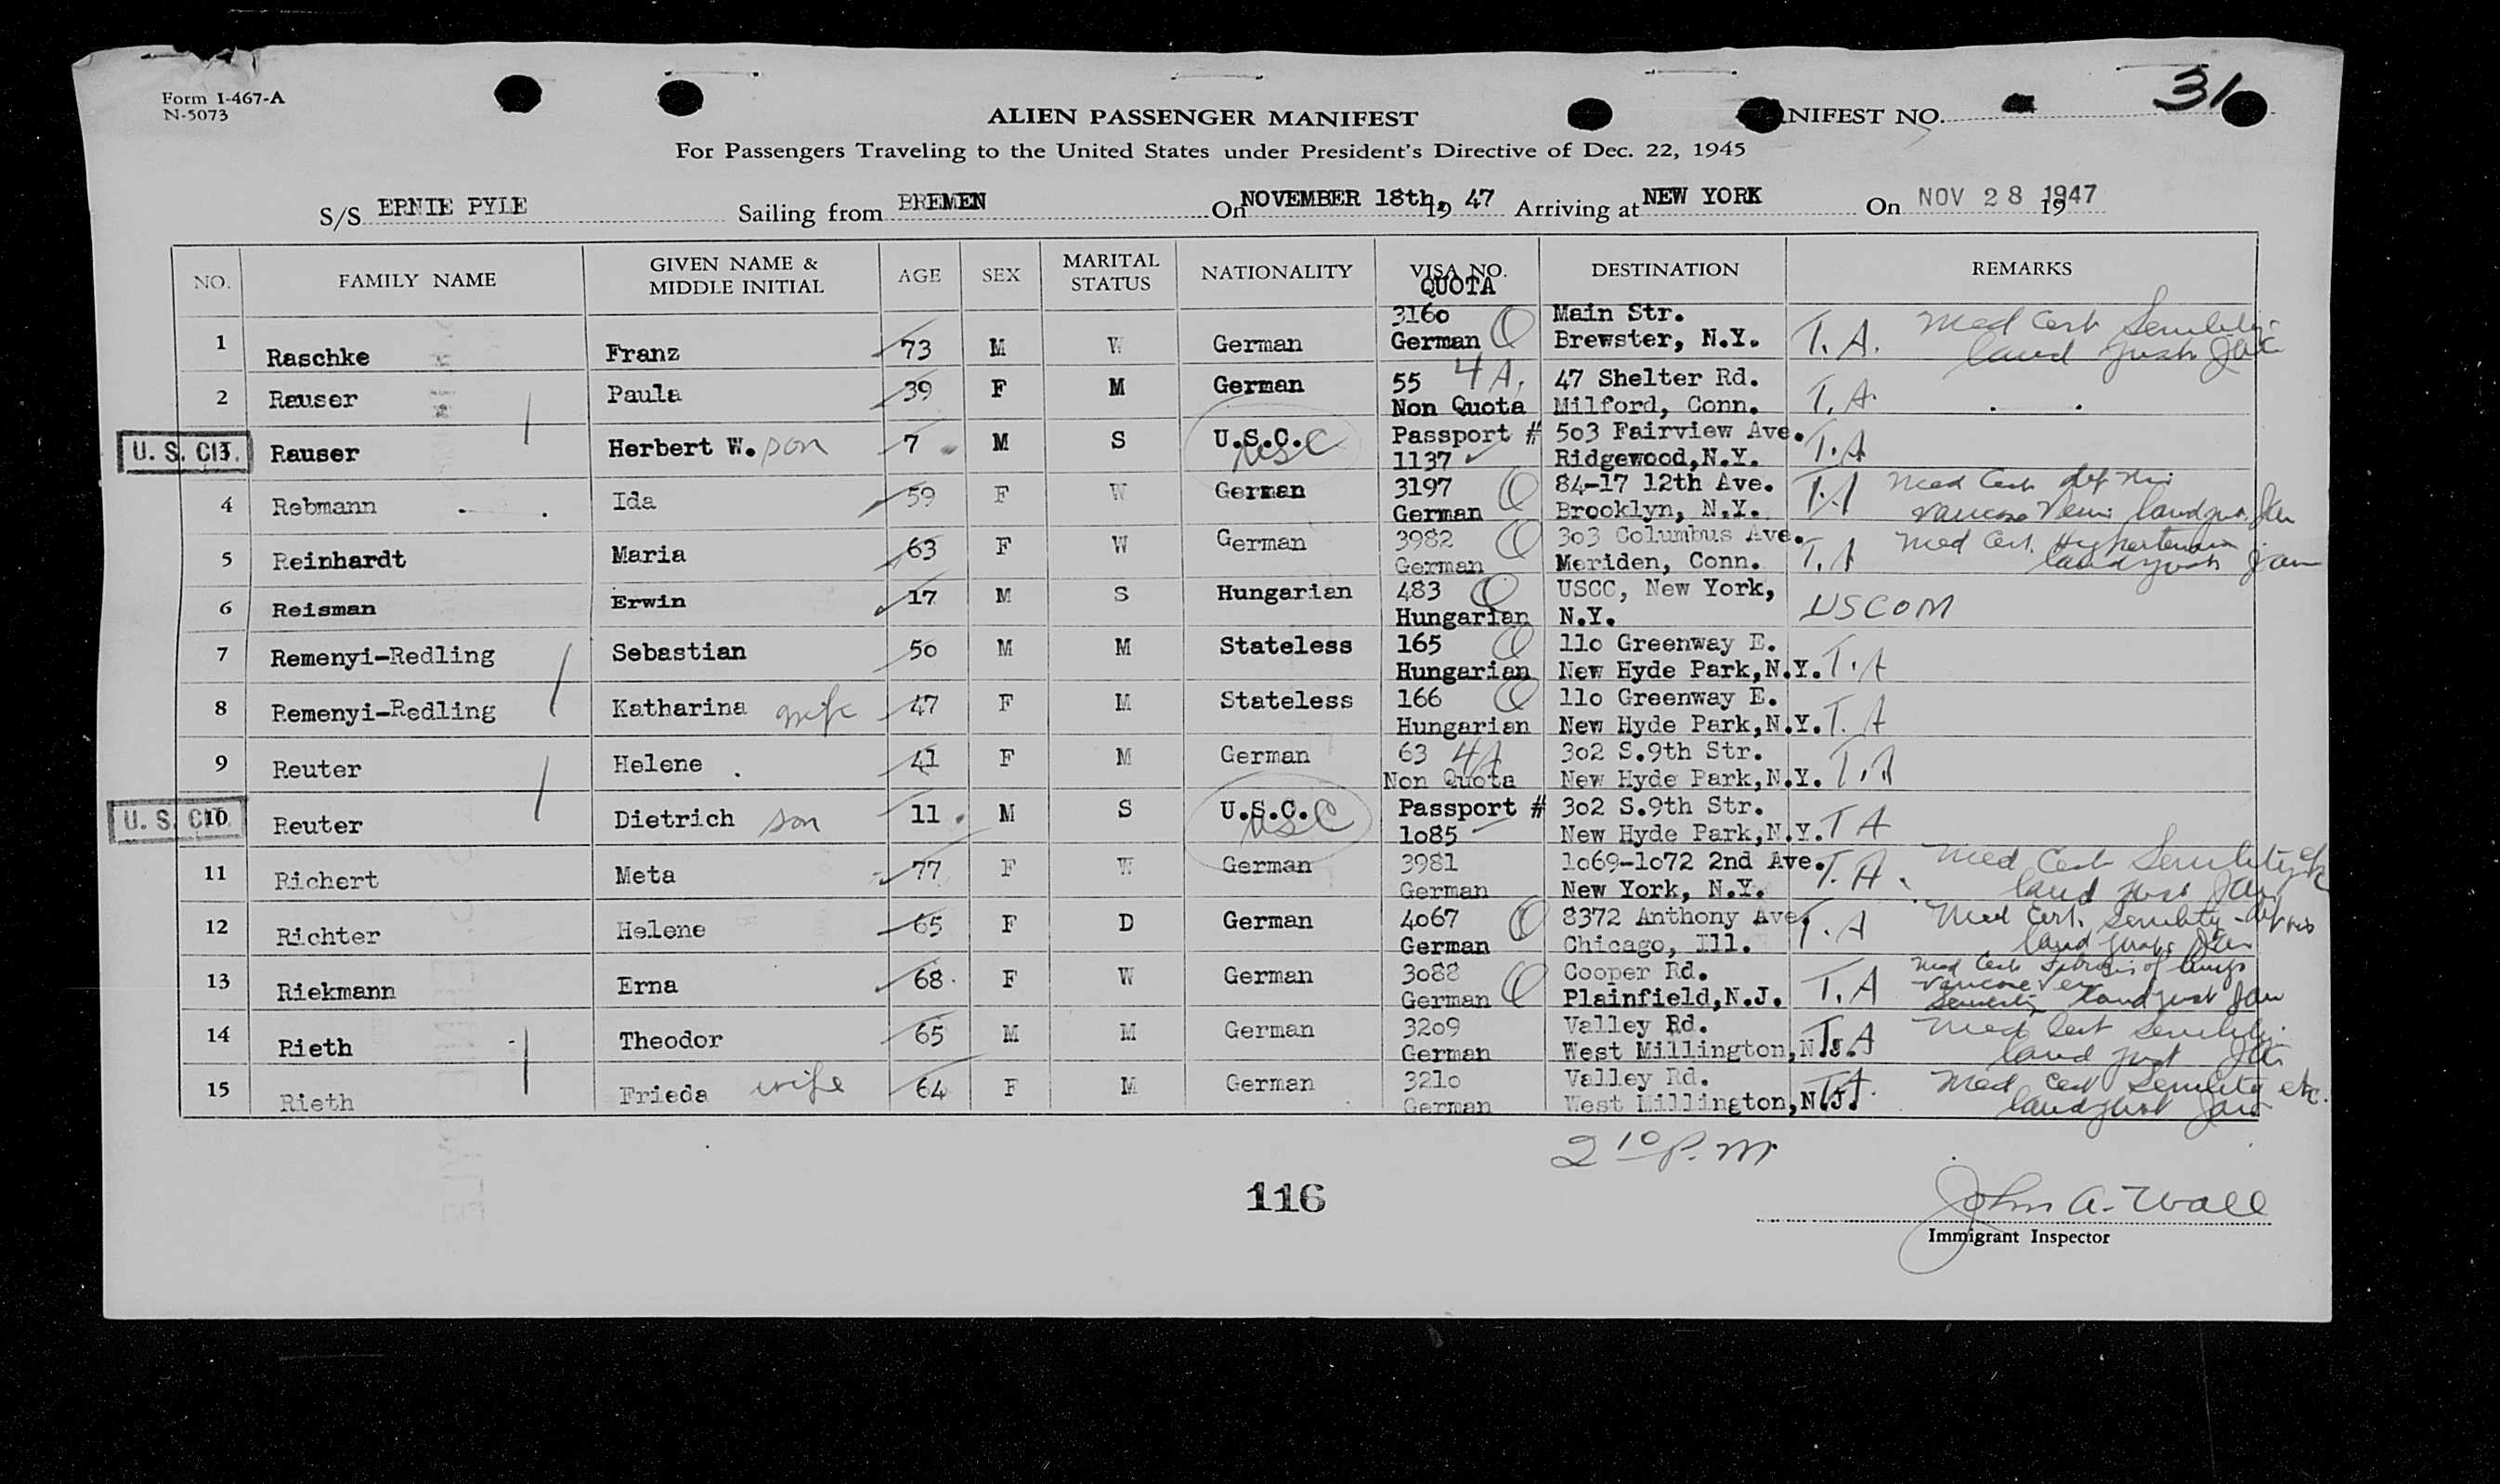 Form I-467-A
N-5073
31
ALIEN PASSENGER MANIFEST
NIFEST NO.
For Passengers Traveling to the United States under President's Directive of Dec. 22, 1945
S/S ERNIE PYLE Sailing from BREMEN On NOVEMBER 18th, 19 47 Arriving at NEW YORK On NOV 28 1947 19
NO. FAMILY NAME GIVEN NAME & MIDDLE INITIAL AGE SEX MARITAL STATUS NATIONALITY VISA NO. QUOTA DESTINATION REMARKS
1 Raschke Franz 73 M W German 3160 Main Str. T.A. Med Cert Senility
German Brewster, N.Y. land
2 Rauser Paula 39 F M German 55 4A. 47 Shelter Rd. T.A.
Non Quota Milford, Conn.
U.S. CIT. 3 Rauser Herbert W. son 7 M S U.S.C. USC Passport # 503 Fairview Ave. T.A
1137 Ridgewood,N.Y.
4 Rebmann Ida 59 F W German 3197 84-17 12th Ave. T.A Med Cert def
German Brooklyn, N.Y. varicose Veins
5 Reinhardt Maria 63 F W German 3982 303 Columbus Ave. T.A Med Cert. Hypertension
German Meriden, Conn.
6 Reisman Erwin 17 M S Hungarian 483 USCC, New York, USCOM
Hungarian N.Y.
7 Remenyi-Redling Sebastian 50 M M Stateless 165 110 Greenway E.
Hungarian New Hyde Park,N.Y. T.A
8 Remenyi-Redling Katharina wife 47 F M Stateless 166 110 Greenway E.
Hungarian New Hyde Park,N.Y. T.A
9 Reuter Helene 41 F M German 63 4A 302 S.9th Str.
Non Quota New Hyde Park,N.Y. T.A
U.S. CIT. 10 Reuter Dietrich son 11 M S U.S.C. USC Passport # 302 S.9th Str.
1085 New Hyde Park,N.Y. T A
11 Richert Meta 77 F W German 3981 1069-1072 2nd Ave. T.A. Med Cert Senility etc
German New York, N.Y. land
12 Richter Helene 65 F D German 4067 8372 Anthony Ave. T.A Med Cert. Senility
German Chicago, Ill. land
13 Riekmann Erna 68 F W German 3088 Cooper Rd. T.A Med Cert Fibrosis of lungs
German Plainfield,N.J. Varicose Senility land
14 Rieth Theodor 65 M M German 3209 Valley Rd. T.A Med Cert Senility
German West Millington,N.J. land
15 Rieth Frieda wife 64 F M German 3210 Valley Rd. T.A. Med Cert Senility etc.
German West Millington,N.J. land
2 10 P.M
116
John A. Wall
Immigrant Inspector